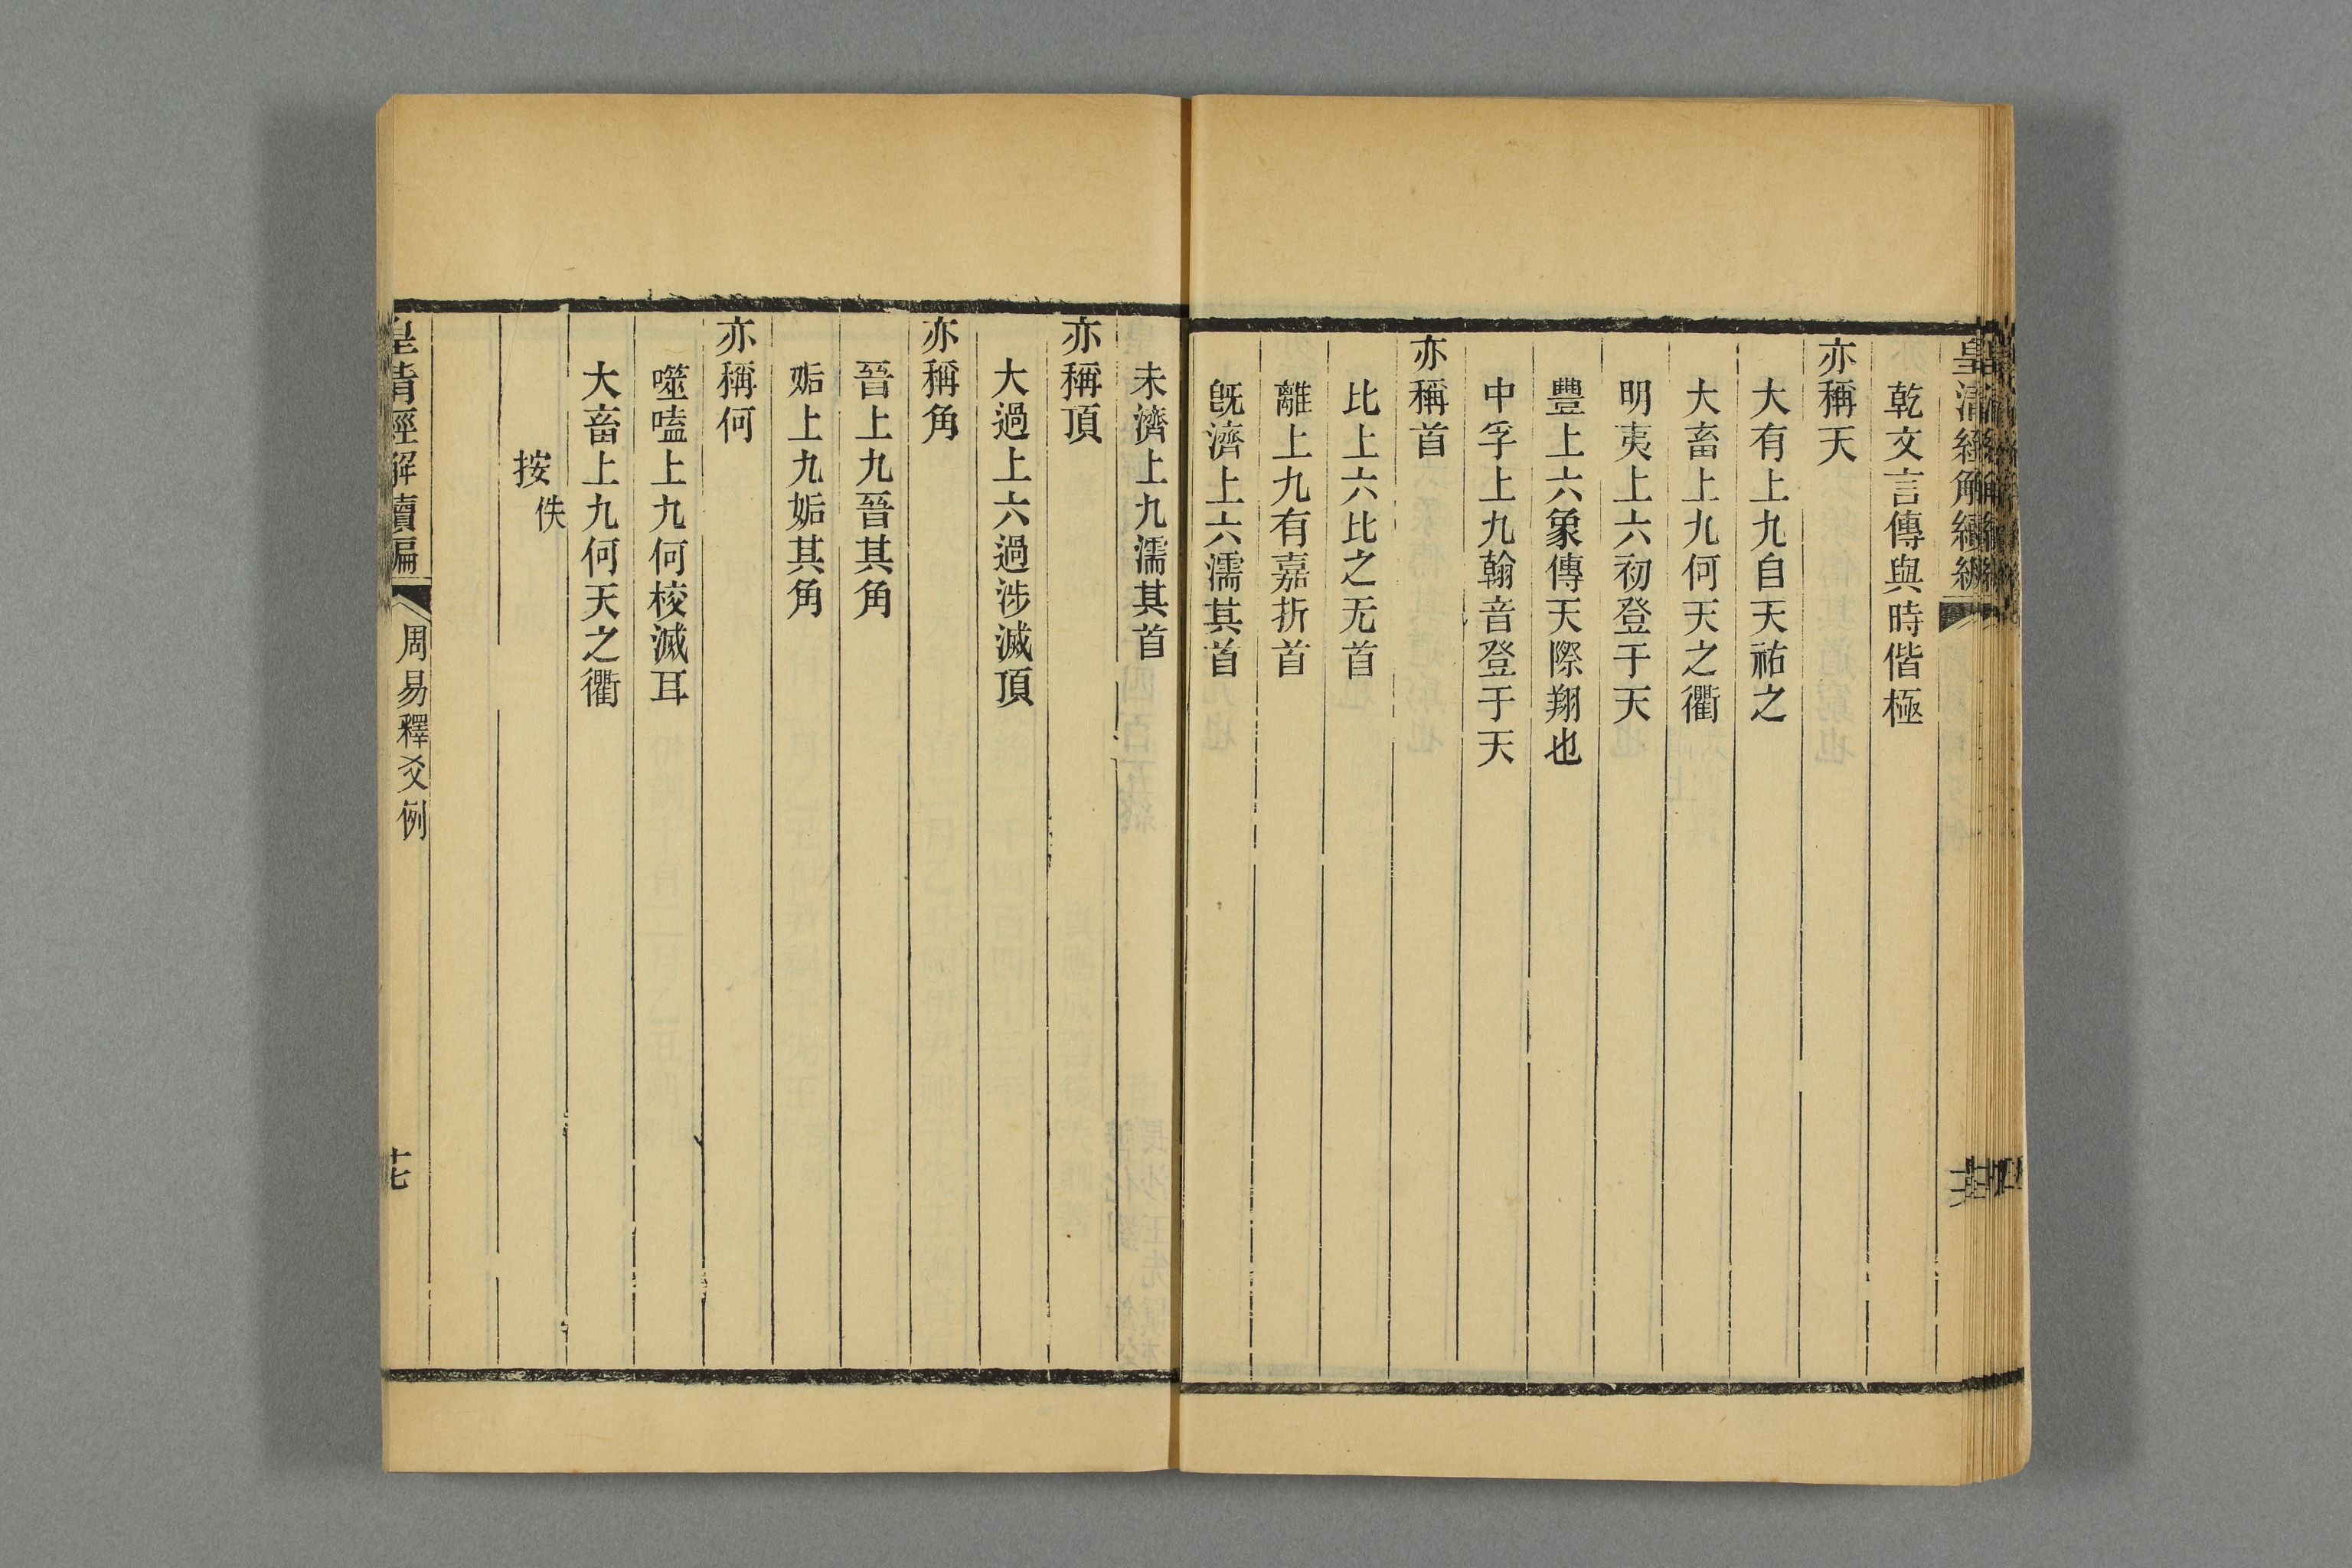 皇清經解續編
乾文言傳與時偕極
亦稱天
大有上九自天祐之
大畜上九何天之衢
明夷上六初登于天
豐上六象傳天際翔也
中孚上九翰音登于天
亦稱首
比上六比之无首
離上九有嘉折首
旣濟上六濡其首
未濟上九濡其首
亦稱頂
大過上六過涉滅頂
亦稱角
晉上九晉其角
姤上九姤其角
亦稱何
噬嗑上九何校滅耳
大畜上九何天之衢
按佚
皇清經解續編 周易釋爻例